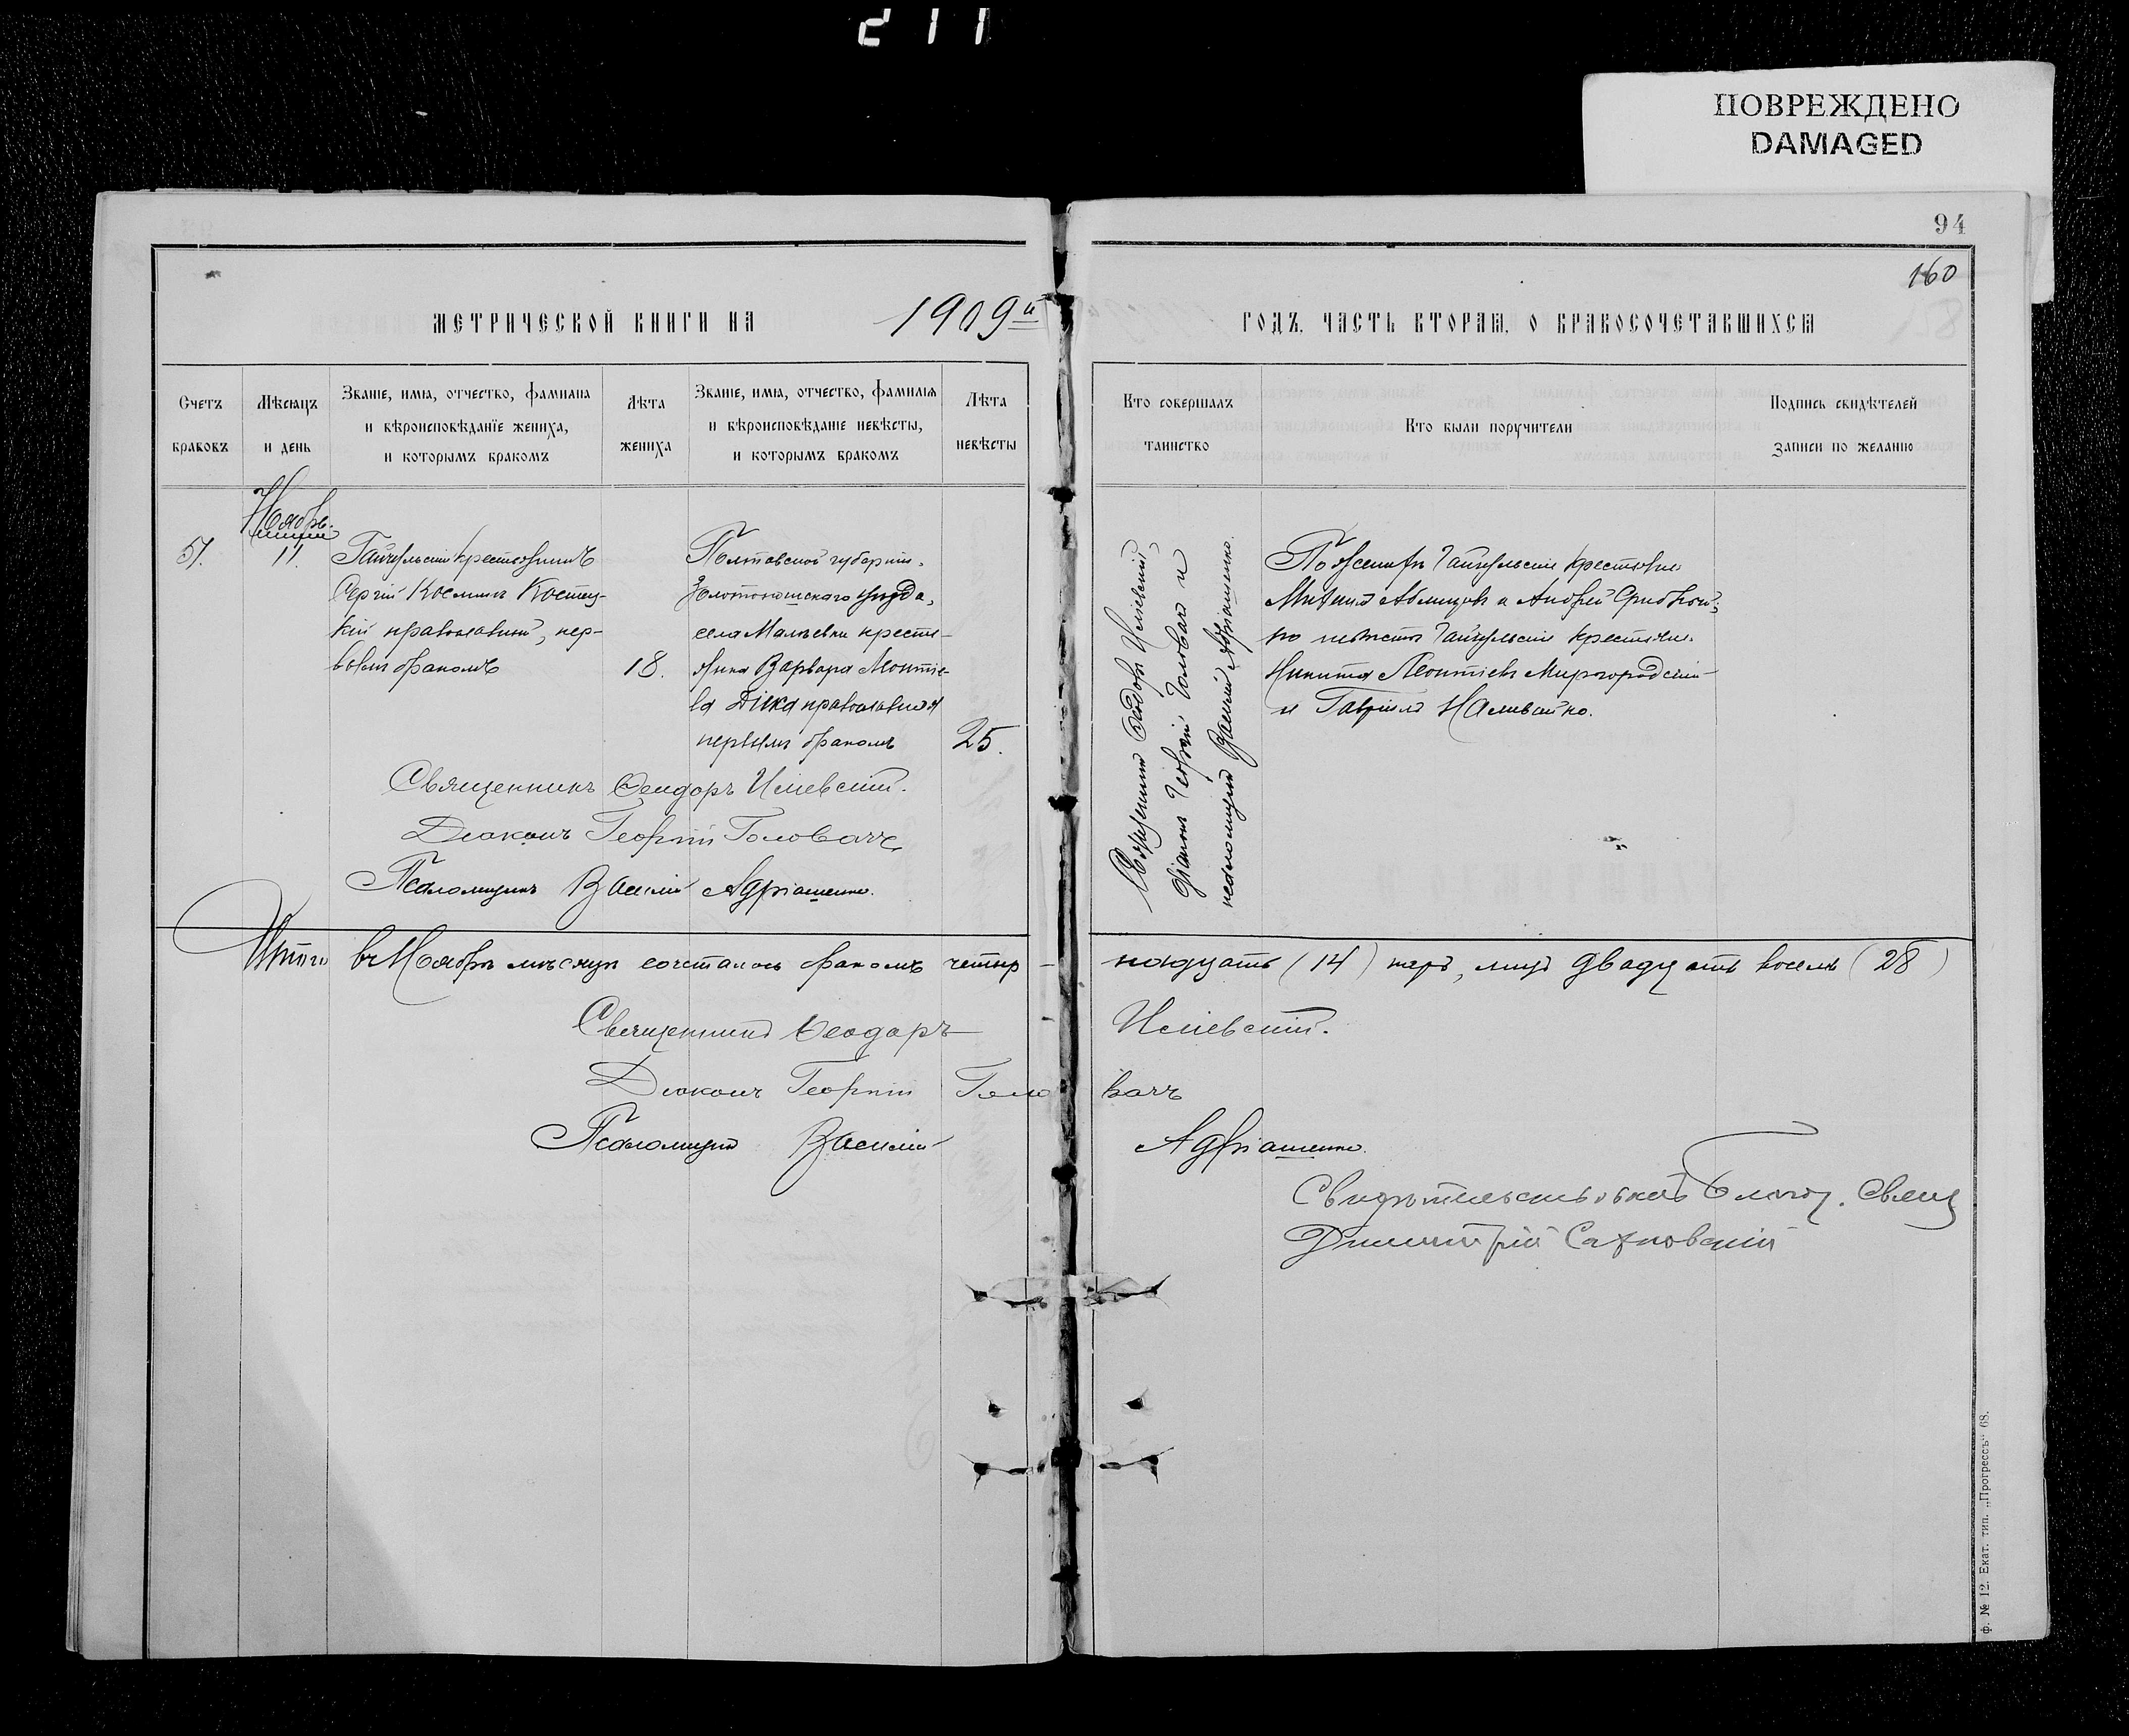 211
ПОВРЕЖДЕНО
DAMAGED
94
160
МЕТРИЧЕСКОЙ КНИГИ НА 1909й
ГОДЪ. ЧАСТЬ ВТОРАЯ, О БРАКОСОЧЕТАВШИХСЯ
Счетъ
браковъ
Мѣсяцъ
и день
Званіе, имя, отчество, фамилія
и вѣроисповѣданіе жениха,
и которымъ бракомъ
Лѣта
жениха
Званіе, имя, отчество, фамилія
и вѣроисповѣданіе невѣсты,
и которымъ бракомъ
Лѣта
невѣсты
Кто совершалъ
таинство
Кто были поручители
Подпись свидѣтелей
записи по желанію
Ноябрь.
57.
11.
крестьянинъ
Сергій Косминъ Костец-
кій православный, пер-
вымъ бракомъ
18.
Полтавской губерніи,
Золотоношскаго уѣзда,
села Мальевки крестья-
янка Варвара Монтіе-
ва Дика православная
первымъ бракомъ
25.
Священникъ Ѳеодоръ
діаконъ Георгій Головачъ и
псаломщикъ Василій Адріашенко.
По женихѣ крестьяне
и Андрей
по невѣстѣ крестьяне
Никита Леонтіевъ Миргородскій
и Гавріилъ Наливайко.
Священникъ Ѳеодоръ
Діаконъ Георгій Головачъ
Псаломщикъ Василій Адріашенко.
Итого въ Ноябрѣ мѣсяцѣ сочеталось бракомъ четыр-
надцать (14) паръ, лицъ двадцать восемь (28)
Священникъ Ѳеодоръ
Діаконъ Георгій Головачъ
Псаломщикъ Василій Адріашенко.
Благоч. Свящ
Димитрій Сахновскій
ф. № 12. Екат. тип. „Прогрессъ“ 68.